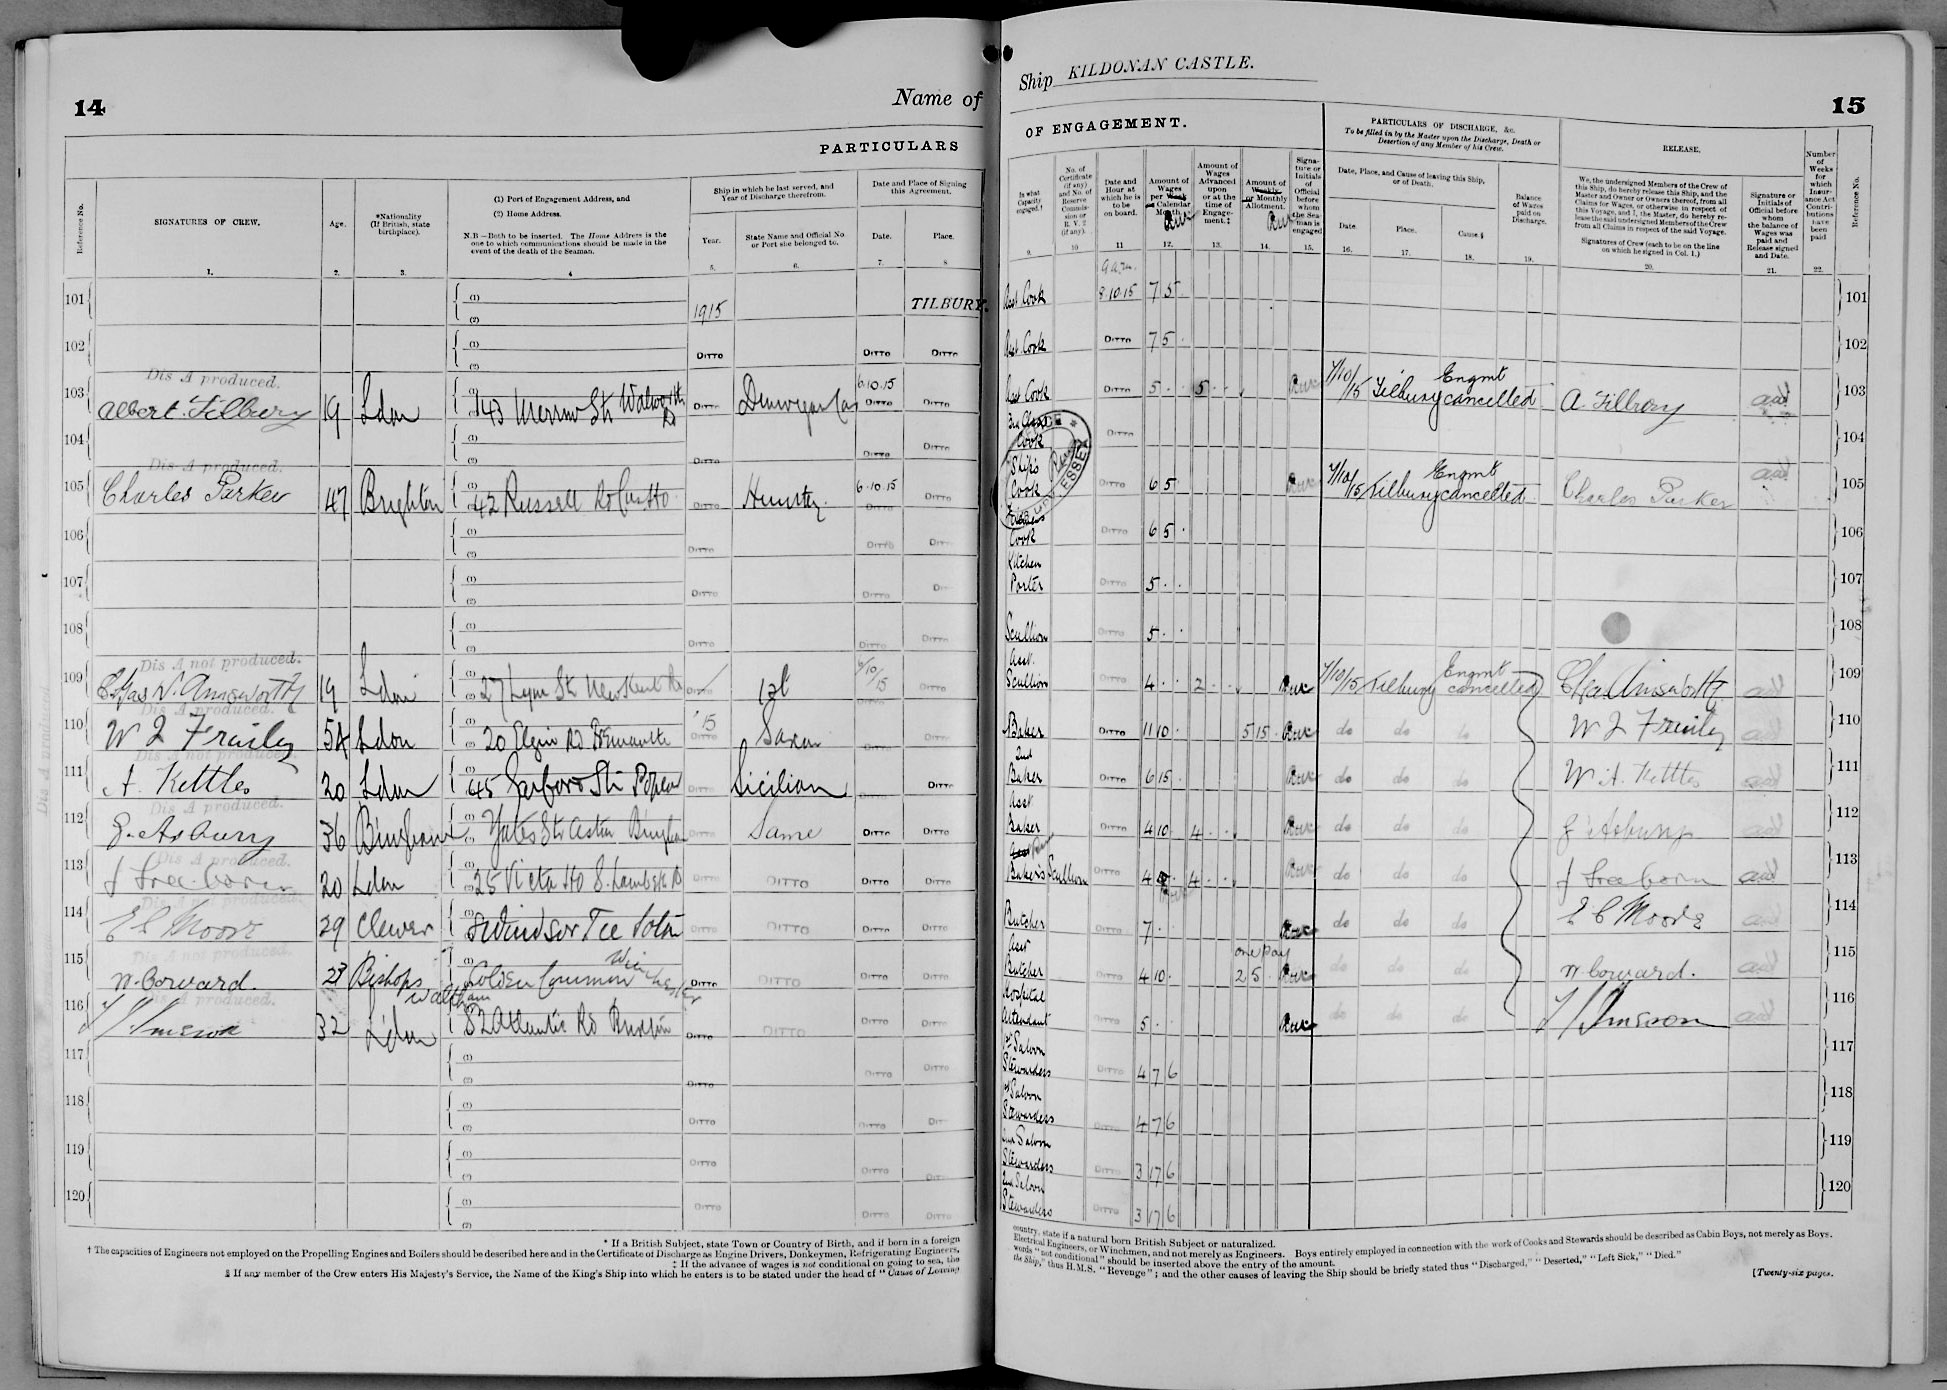 14
Name of
PARTICULARS
Reference No.
SIGNATURES OF CREW.
Age.
*Nationality
(If British, state
birthplace).
(1) Port of Engagement Address, and
(2) Home Address.
N.B.—Both to be inserted. The Home Address is the
one to which communications should be made in the
event of the death of the Seaman.
Ship in which he last served, and
Year of Discharge therefrom.
Year.
State Name and Official No.
or Port she belonged to.
Date and Place of Signing
this Agreement.
Date.
Place.
1. 2. 3. 4 5. 6. 7. 8
101 (1) (2) 1915 TILBURY.
102 (1) (2) Ditto Ditto Ditto
Dis A produced.
103 Albert Tilbury 19 Ldon 43 Merrow St Walworth Rd Ditto 6.10.15 Ditto Ditto
104 (1) (2) Ditto Ditto Ditto
Dis A produced.
105 Charles Parker 47 Brighton 42 Russell Rd Ditto 6.10.15 Ditto Ditto
106 (1) (2) Ditto Ditto Ditto
107 (1) (2) Ditto Ditto
108 (1) (2) Ditto Ditto Ditto
Dis A not produced.
109 Chas W. Ainsworth 19 Ldon 27 Lynn St New Kent Rd 1st 6/10/15 Ditto
Dis A produced.
110 54 Ldon 20 Elgin Rd '15 Ditto Saxon Ditto
Dis A not produced.
111 A. Kettles 20 Ldon 45 St Poplar Ditto Sicilian Ditto
Dis A produced.
112 Asbury 36 Yates St Aston Ditto Same Ditto Ditto
Dis A produced.
113 J Freeborn 20 Ldon 25 Ditto DITTO Ditto Ditto
Dis A not produced.
114 E C Moore 29 Clewer Windsor Tce Soton Ditto DITTO Ditto Ditto
Dis A not produced.
115 W. Coward. Bishops Waltham Colden Common Winchester Ditto DITTO Ditto Ditto
Dis A produced.
116 32 Ldon 82 Atlantic Rd Brixton Ditto DITTO Ditto
117 (1) (2) Ditto Ditto Ditto
118 (1) (2) Ditto Ditto
119 (1) (2) Ditto Ditto Ditto
120 (1) (2) Ditto Ditto Ditto
* If a British Subject, state Town or Country of Birth, and if born in a foreign
† The capacities of Engineers not employed on the Propelling Engines and Boilers should be described here and in the Certificate of Discharge as Engine Drivers, Donkeymen, Refrigerating Engineers,
‡ If the advance of wages is not conditional on going to sea, the
§ If any member of the Crew enters His Majesty's Service, the Name of the King's Ship into which he enters is to be stated under the head of "Cause of Leaving
Ship KILDONAN CASTLE.
15
OF ENGAGEMENT.
In what
Capacity
engaged.†
No. of
Certificate
(if any)
and No. of
Reserve
Commis-
sion or
R. V. 2
(if any).
Date and
Hour at
which he is
to be
on board.
Amount of
Wages
per Week
or Calendar
Month.
Amount of
Wages
Advanced
upon
or at the
time of
Engage-
ment.‡
Amount of
Weekly
or Monthly
Allotment.
Signa-
ture or
Initials
of
Official
before
whom
the Sea-
man is
engaged
PARTICULARS OF DISCHARGE, &c.
To be filled in by the Master upon the Discharge, Death or
Desertion of any Member of his Crew.
Date, Place, and Cause of leaving this Ship,
or of Death.
Date.
Place.
Cause.§
Balance
of Wages
paid on
Discharge.
RELEASE.
We, the undersigned Members of the Crew of
this Ship, do hereby release this Ship, and the
Master and Owner or Owners thereof, from all
Claims for Wages, or otherwise in respect of
this Voyage, and I, the Master, do hereby re-
lease the said undersigned Members of the Crew
from all Claims in respect of the said Voyage.
Signatures of Crew (each to be on the line
on which he signed in Col. 1.)
Signature or
Initials of
Official before
whom
the balance of
Wages was
paid and
Release signed
and Date.
Number
of
Weeks
for
which
Insur-
ance Act
Contri-
butions
have
been
paid
Reference No.
9. 10 11 12. 13. 14. 15. 16. 17. 18. 19. 20. 21. 22.
Asst Cook 9 a.m. 8.10.15 7 5 101
Asst Cook Ditto 7 5 102
Asst Cook Ditto 5 5 7/10/15 Tilbury Engmt cancelled A. Tilbury 103
Cook Ditto 104
Ship's Cook Ditto 6 5 7/10/15 Tilbury Engmt cancelled Charles Parker 105
Cook Ditto 6 5 106
Kitchen Porter Ditto 5 107
Scullion Ditto 5 108
Asst. Scullion Ditto 4 2 7/10/15 Tilbury Engmt cancelled Chas Ainsworth 109
Baker Ditto 11 10 5 15 do do do 110
2nd Baker Ditto 6 15 do do do W. A. Kettles 111
Asst Baker Ditto 4 10 4 do do do Asbury 112
Baker's Scullion Ditto 4 4 do do do J Freeborn 113
Butcher Ditto 7 do do do E C Moore 114
Asst Butcher Ditto 4 10 one pay 2 5 do do do W Coward. 115
Hospital Attendant 5 do do do 116
1st Saloon Stewardess Ditto 4 7 6 117
1st Saloon Stewardess Ditto 4 7 6 118
2nd Saloon Stewardess Ditto 3 17 6 119
2nd Saloon Stewardess Ditto 3 17 6 120
country, state if a natural born British Subject or naturalized.
Electrical Engineers, or Winchmen, and not merely as Engineers. Boys entirely employed in connection with the work of Cooks and Stewards should be described as Cabin Boys, not merely as Boys.
words "not conditional" should be inserted above the entry of the amount.
the Ship," thus H.M.S. "Revenge"; and the other causes of leaving the Ship should be briefly stated thus "Discharged," "Deserted," "Left Sick," "Died."
[Twenty-six pages.